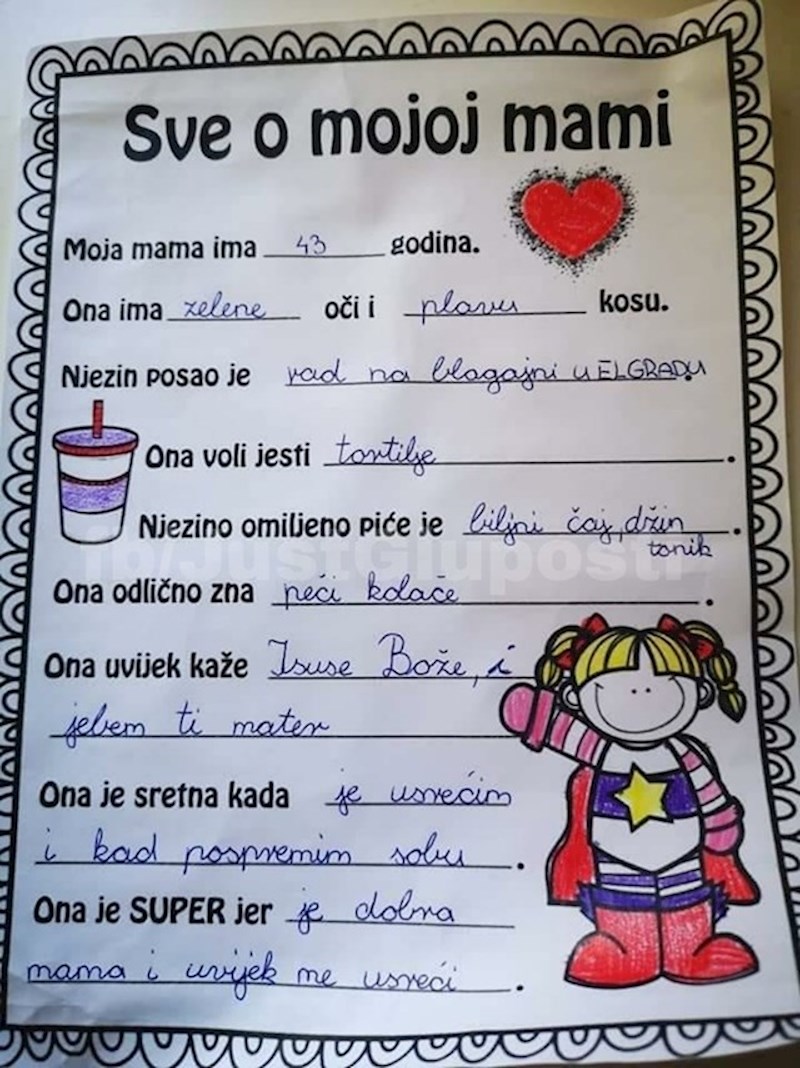 Sve o mojoj mami
Moja mama ima 43 godina.
Ona ima zelene oči i plavu kosu.
Njezin posao je rad na blagajni u ELGRADU
Ona voli jesti tortilje.
Njezino omiljeno piće je biljni čaj, džin
tonik
fb/JustGluposti
Ona odlično zna peći kolače.
Ona uvijek kaže Isuse Bože, i
jebem ti mater
Ona je sretna kada je usrećim
i kad pospremim sobu.
Ona je SUPER jer je dobra
mama i uvijek me usreći.